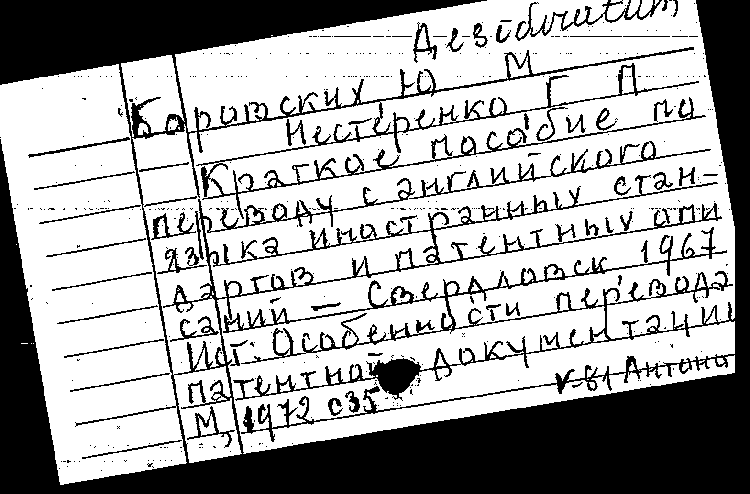 Дезidеratum
Боровских Ю М
Нестеренко Г П
Краткое пособие по
переводу с английского
языка иностранных стан-
дартов и патентных опи
саний — Свердловск 1967
Ист: Особенности перевода
патентной документации
М, 1972 с35
V-81 Антона